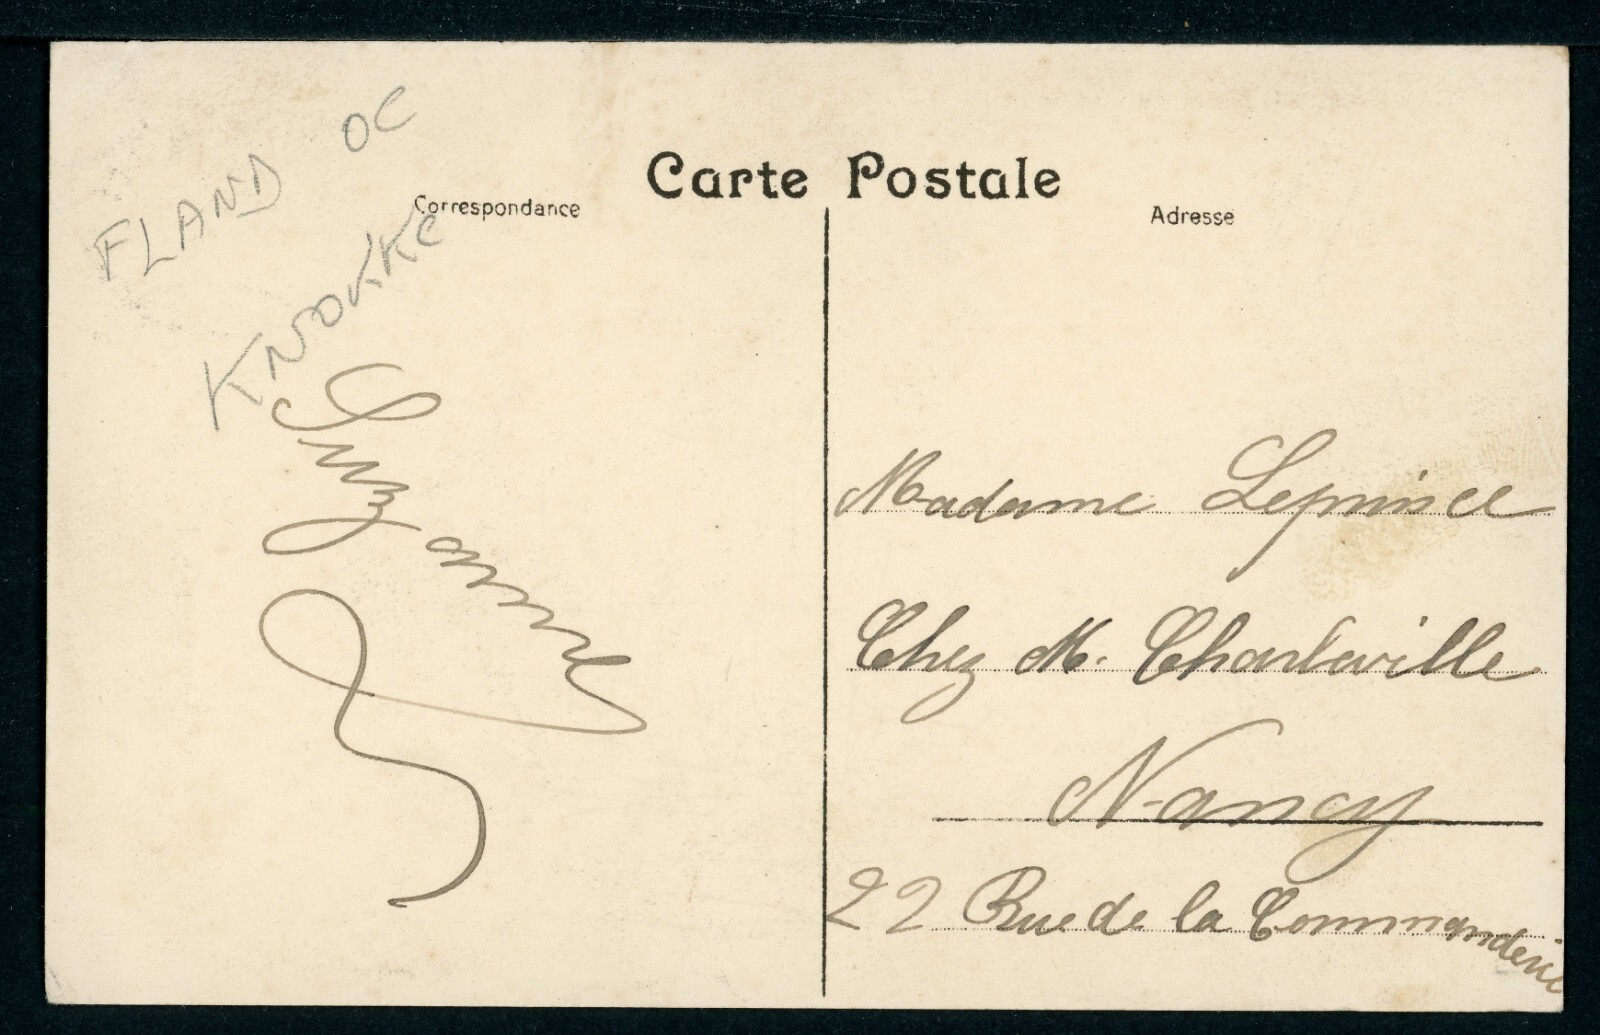 FLAND OC
KNOKKE
Carte Postale
Correspondance
Adresse
Suzanne
Madame Leprince
Chez M. Charleville
Nancy
22 Rue de la Commanderie